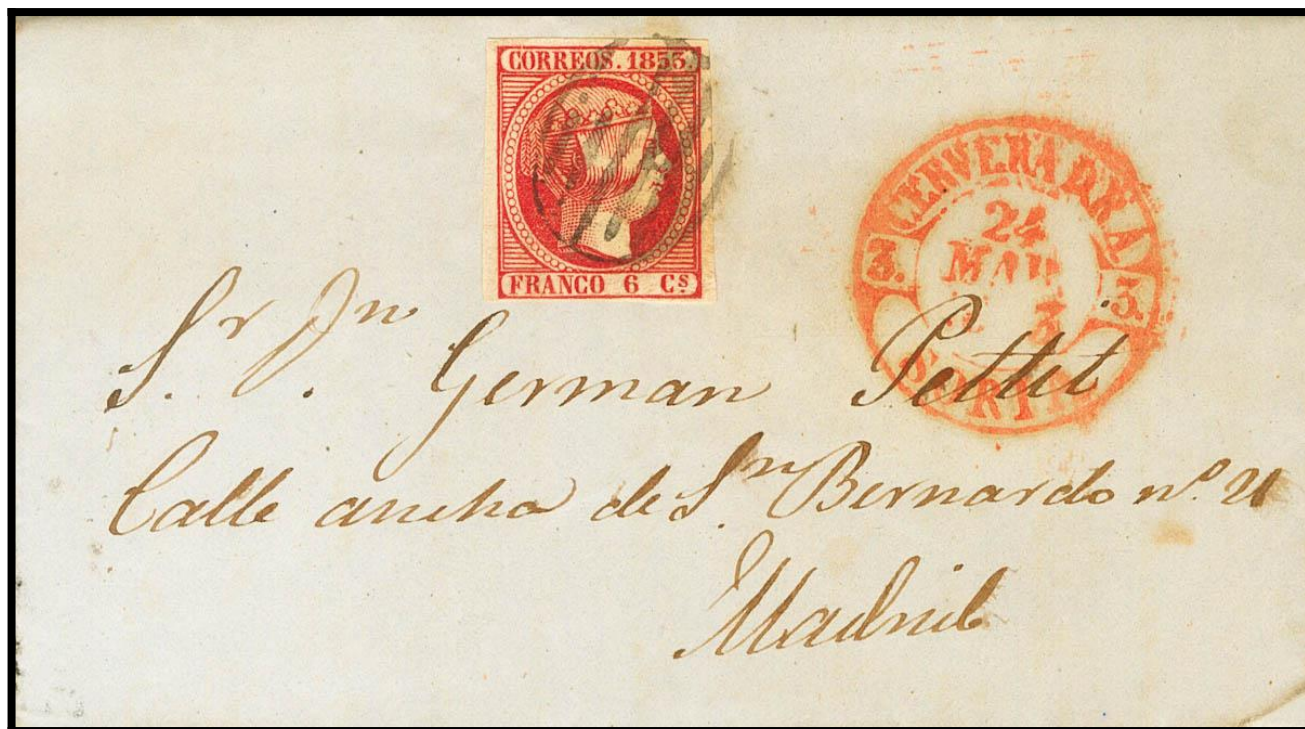 CORREOS. 1853.
FRANCO 6 Cs
CERVERA DE R A
24
MAR
3
3. 3.
SORIA
Sr. Dn. German Pettit
Calle ancha de Sn. Bernardo nº. 21
Madrid